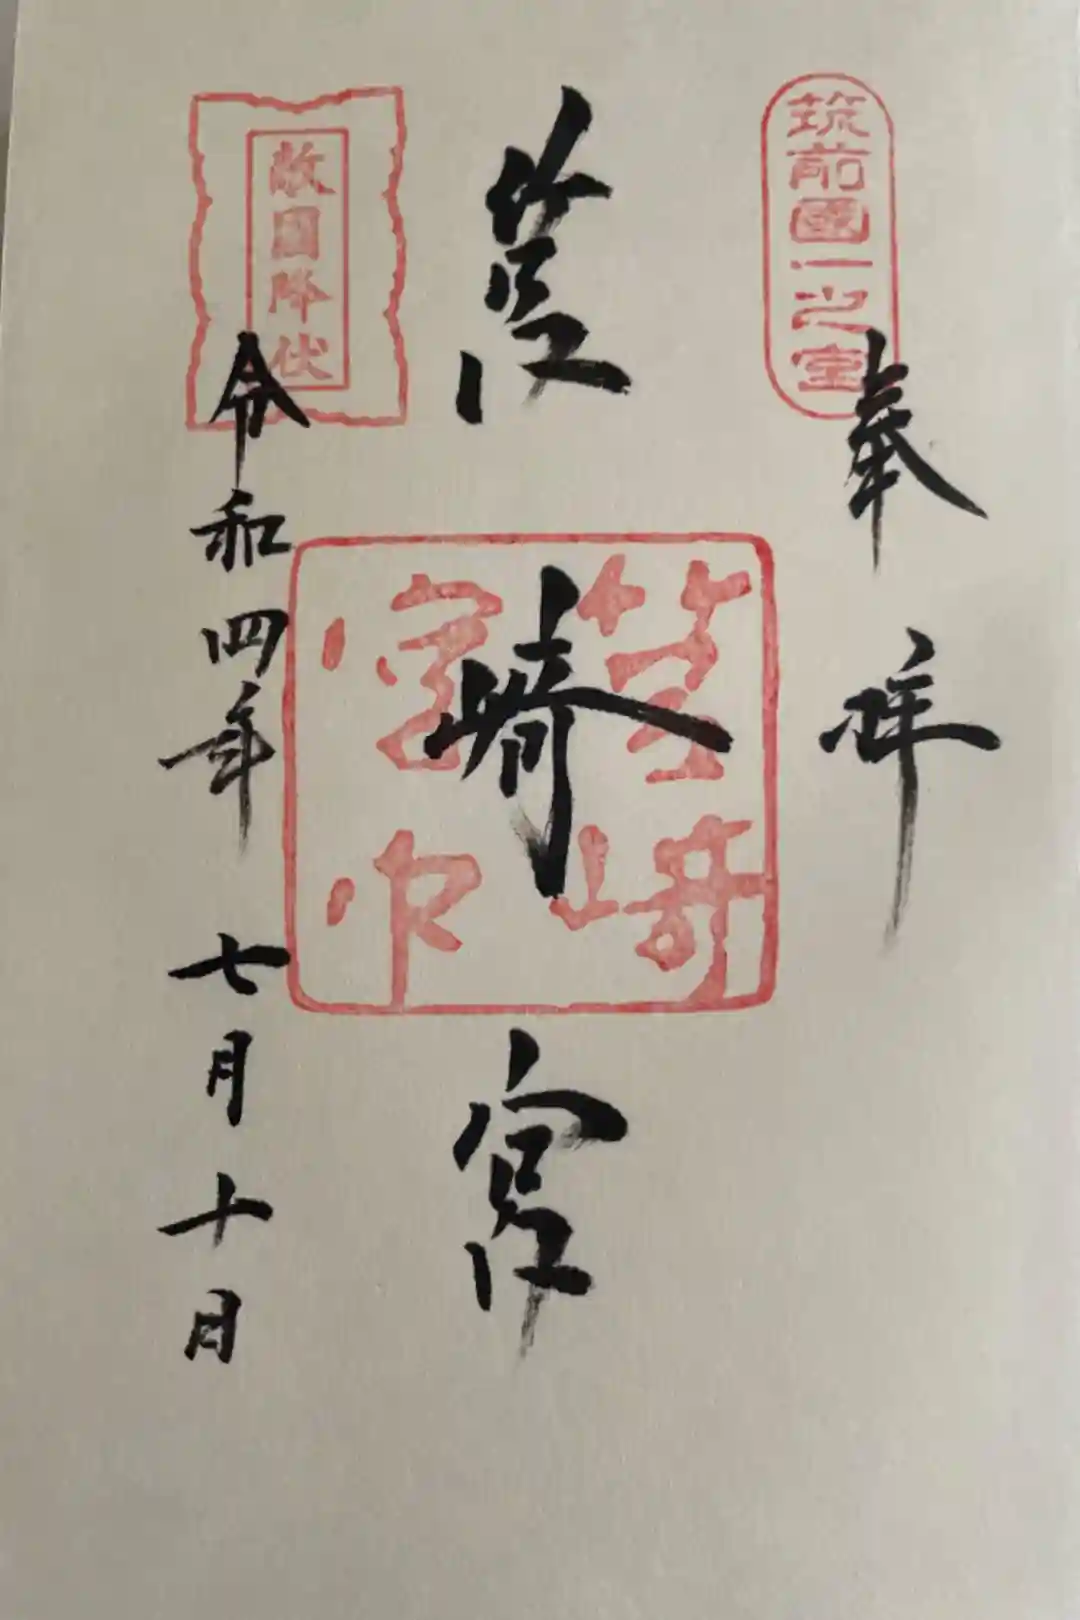 筑前國一之宮
奉拝
筥崎宮
筥崎
宮印
敵国降伏
令和四年 七月十日